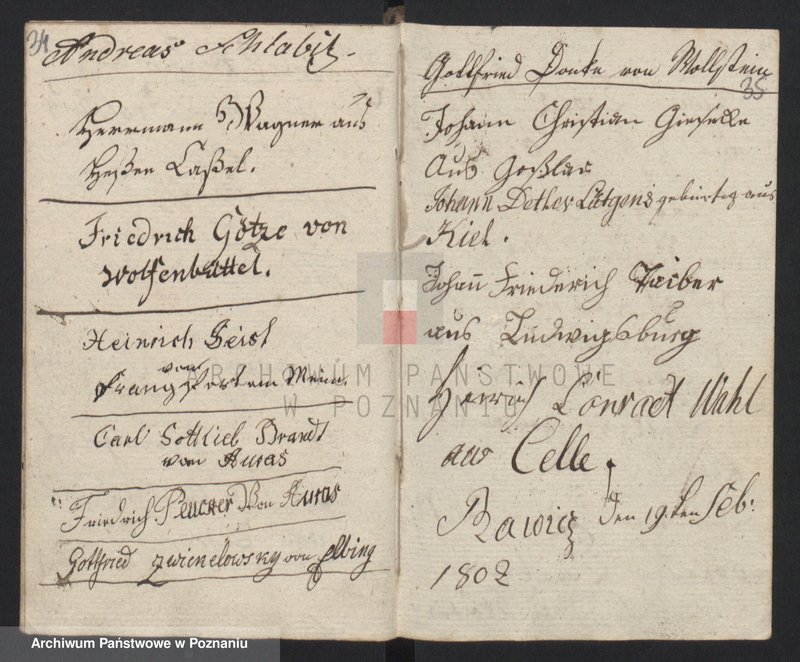 34
Andreas Schlabitz
Herrmann Wagner aus
Heßen Caßel.
Friedrich Götze von
Wolfenbüttel.
Heinrich Geist
von
Frangfort am Meun.
Carl Gottlieb Brandt
von Auras
Friedrich Peucker Von Auras
Gottfried Zwienelowsky von Elbing
Gottfried Donke von Wollstein
35
Johann Christian Gieselke
Aus Goßlar
Johann Detlev Lütgens gebürtig aus
Kiel.
Johann Friederich Taiber
aus Ludwigsburg
Heinrich Conradt Wahl
aus Celle.
Rawicz den 19ten Feb:
1802
ARCHIWUM PAŃSTWOWE
W POZNANIU
Archiwum Państwowe w Poznaniu